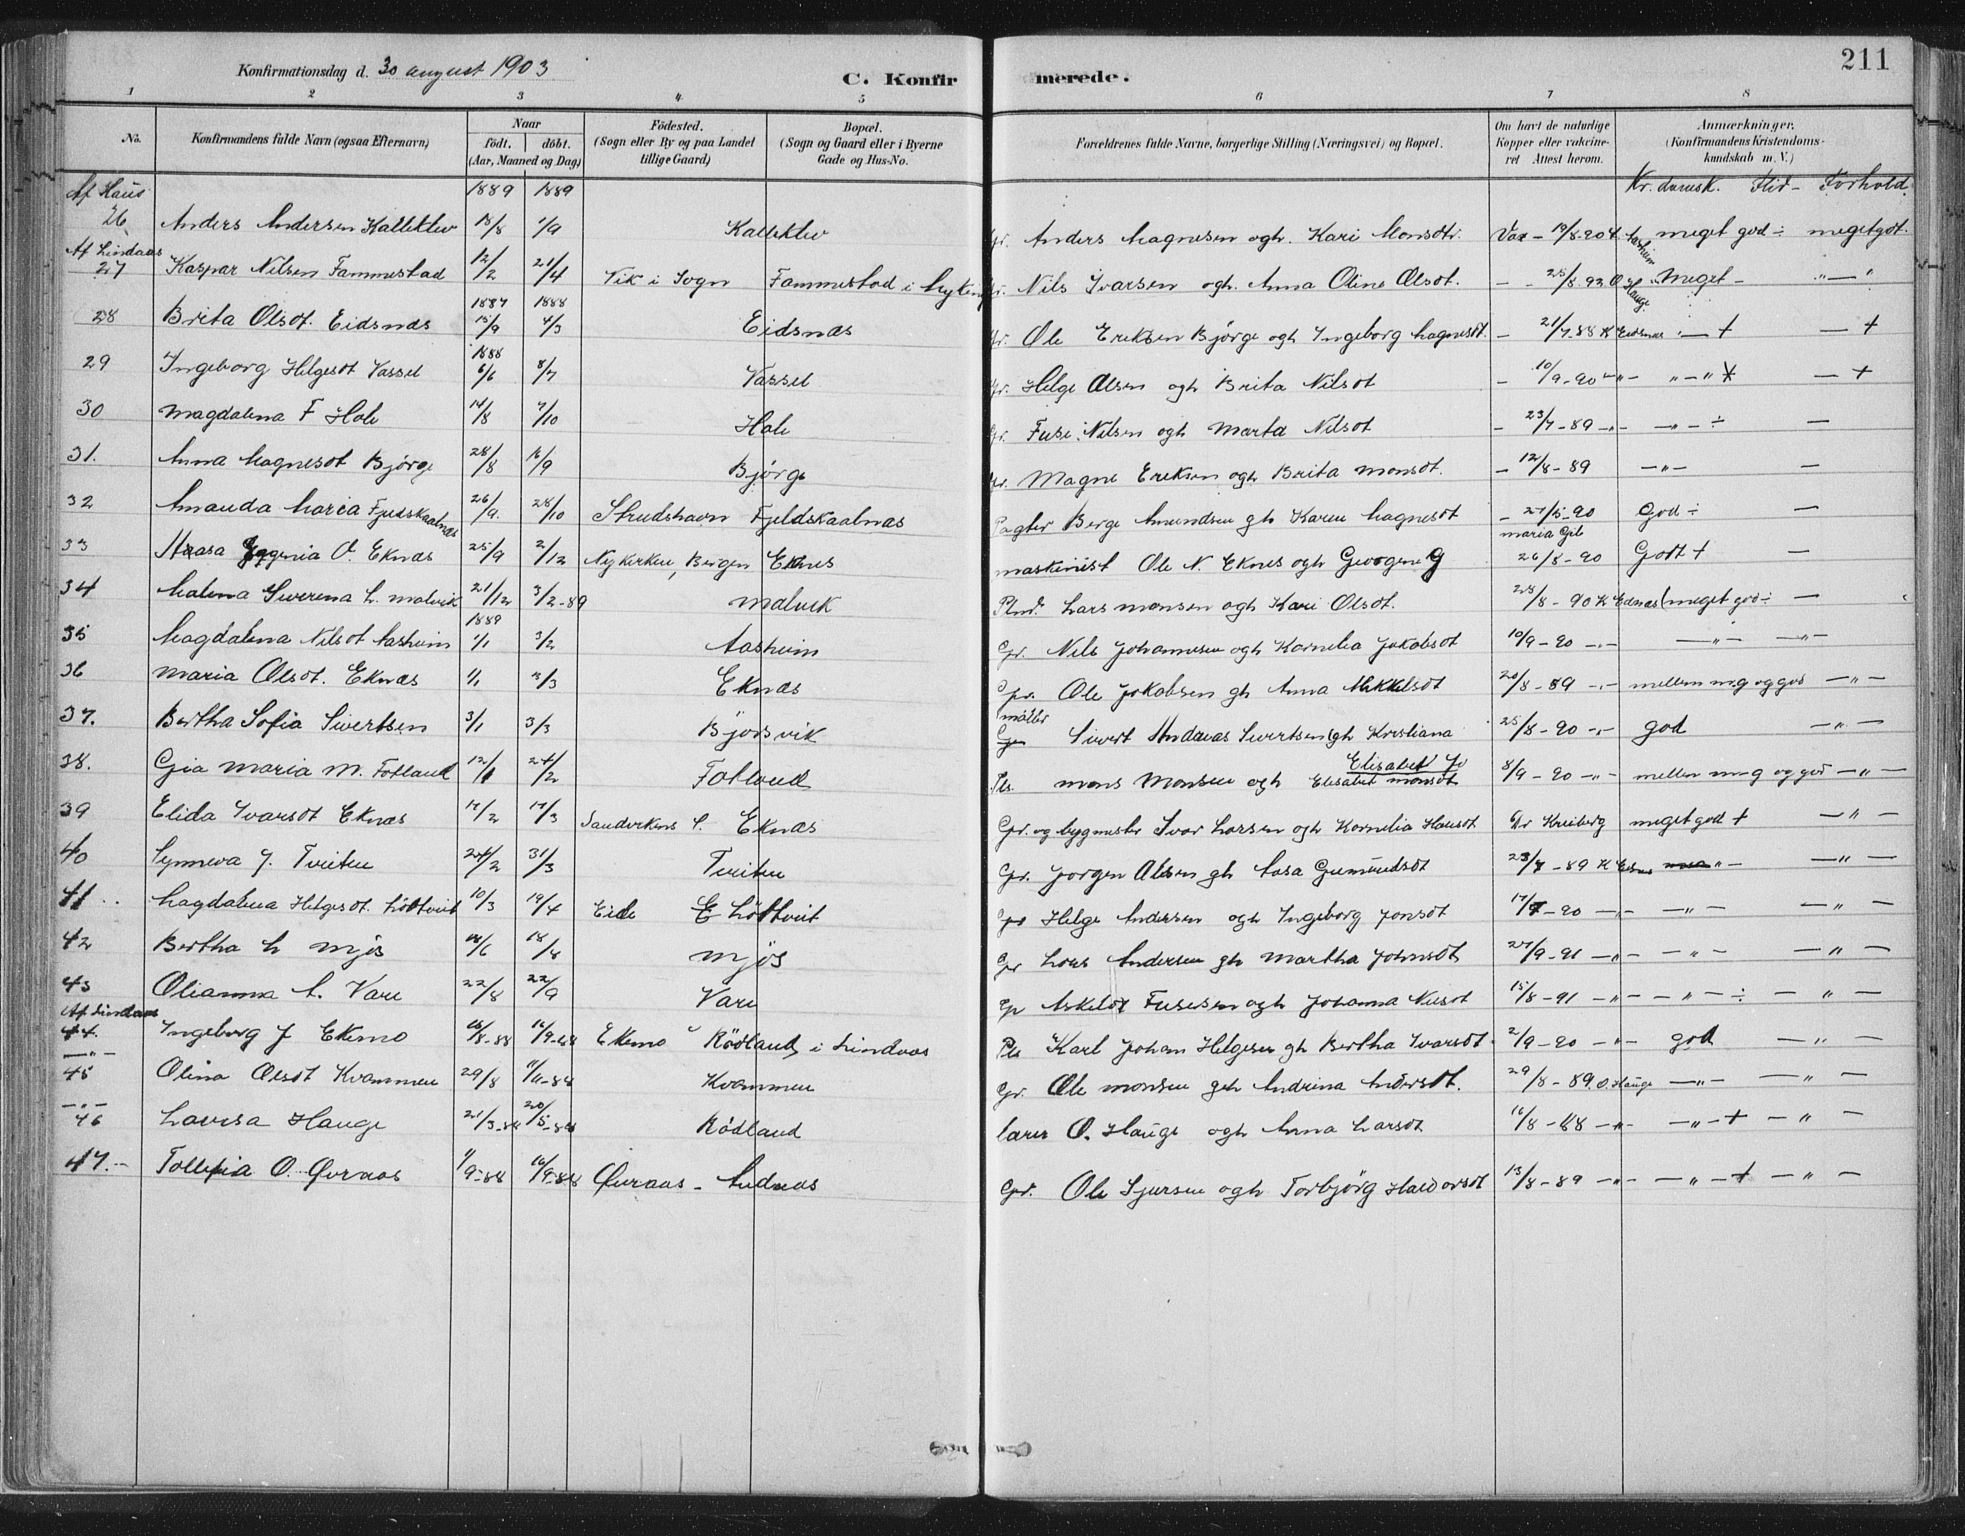 Konfirmationsdag d. 30 august 1903
C. Konfirmerede.
211
1 2 3 4 5 6 7 8
No. Konfirmandens fulde Navn (ogsaa Efternavn) Naar født. døbt. (Aar, Maaned og Dag) Fødested. (Sogn eller By og paa Landet tillige Gaard) Bopæl. (Sogn og Gaard eller i Byerne Gade og Hus-No. Forældrenes fulde Navne, borgerlige Stilling (Næringsvei) og Bopæl. Om havt de naturlige Kopper eller vakcineret Attest herom. Anmærkninger. (Konfirmandens Kristendomskundskab m. V.)
Af Haus 1889 1889 Kr. damsk. Flid - Forhold
26 Anders Andersen Kalleklev 18/8 1/9 Kalleklev Gr. Anders Magnesen ogh. Kari Monsdtr. Vax - 19/8-90 meget god ÷ megetgot.
Af Lindaas
27 Kaspar Nilsen Fammestad 12/2 21/4 Vik i Sogn Fammestad i Myking Gr. Nils Ivarsen ogh. Anna Oline Olsdt. - 25/8-93 O Hauge Meget - " — "
1887 1888
28 Brita Olsdt. Eidsnæs 15/9 4/3 Eidsnæs Gr. Ole Eriksen Bjørge ogh Ingeborg Magnesdt. - 21/7-88 K Eidsnæs " — + — +
1888
29 Ingeborg Helgesdt Vassel 6/6 8/7 Vassel Gr. Helge Olsen ogh Brita Nilsdt - 10/9-90 - " - " - " — +
30 Magdalena F Hole 14/8 7/10 Hole Gr. Fuse Nilsen ogh Marta Nilsdt - 23/7-89 - " - - " - ÷ —
31. Anna Magnesdt Bjørge 28/8 16/9 Bjørge Gr. Magne Eriksen ogh Brita Monsdt. - 12/8-89 - " - —
32 Amanda Maria Fjeldskaalnæs 26/9. 28/10 Strudshavn Fjeldskaalnæs Pagter Berge Amundsen gh Karen Magnesdt - 27/5-90 God ÷ —
maria Gil
33 Eugenia O. Eknæs 25/9 2/12 Nykirken, Bergen Eknes maskinist Ole N. Eknes ogh Georgine G 26/8-90 Godt + —
34 Malena Severena L. Malvik 21/12 3/2-89 Malvik Lars Monsen ogh Kari Olsdt. 28/8-90 K Eidnæs meget god ÷ —
1889
35 Magdalena Nilsdt Aasheim 1/1 3/2 Aasheim Gr. Nils Johannesen ogh Kornelia Jakobsdt 10/9-90 - " - — " — — " —
36 Maria Olsdt. Eknæs 1/1 3/3 Eknæs Gr. Ole Jakobsen gh Anna Mikkelsdt 20/8-89 - " - mellem m.g og god — " —
møller
37. Bertha Sofia Sivertsen 3/1 3/3 Bjørsvik Sivert Andreas Sivertsen gh Kristiana 25/8-90 - " - god — " —
Elisabet Jo
38. Gia Maria M. Fotland 12/1 24/2 Fotland Pls. Mons Monsen ogh Elisabet Monsdt 8/9-90 - " - mellem m.g og god — " —
39 Elida Ivarsdt Eknæs 17/2 17/3 Sandvikens S. Eknæs Gr. og bygmester Ivar Larsen ogh Kornelia Hansdt Dr Kreiberg meget god + — " —
40 Synneva J. Tveiten 24/2 31/3 Tveiten Gr. Jørgen Olsen gh Aasa Gumundsdt 23/7-89 K " - — " —
41 Magdalena Helgesdt. Løtveit 10/3 19/4 Eide E Løtveit Gr Helge Andersen ogh Ingeborg Jonsdt 17/7-90 - " - — " — — " —
42 Bertha L Mjøs 10/6 18/8 Mjøs Gr Lars Andersen gh Martha Johnsdt 27/9-91 - " - - " - — " —
43 Olianna A. Vare 22/8 22/9 Vare Gr Askeld Fusesen ogh Johanna Nilsdt 15/8-91 - " - - " - ÷ — " —
Af Lindaas
44. Ingeborg J Ekemo 16/8-88 16/9-88 Ekemo Rødland i Lindaas Pls Karl Johan Helgesen gh Bertha Ivarsdt 2/9-90 - " - god — " —
— " —
45 Olina Olsdt Kvammen 29/8 Kvammen Gr. Ole Monsen gh Andrina Andersdt. 29/8-89 O. Hauge — " — — " —
— " —
46 Lovisa Hauge 21/3-88 20/5-88 Rødland lærer O. Hauge ogh Anna Larsdt 16/8-88 - " - - " - + — " —
47. - Tollefia O. Qvraas 1/9-88 16/9-88 Qvraas - Audnas Gr. Ole Sjursen ogh Torbjørg Haldorsdt 13/8-89 - " - — " — + — " —